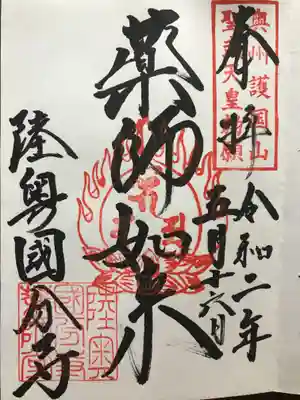 奉拝
令和二年
五月十六日
奥州護国山
聖武天皇勅願
薬師如来
陸奥國分寺
陸奥